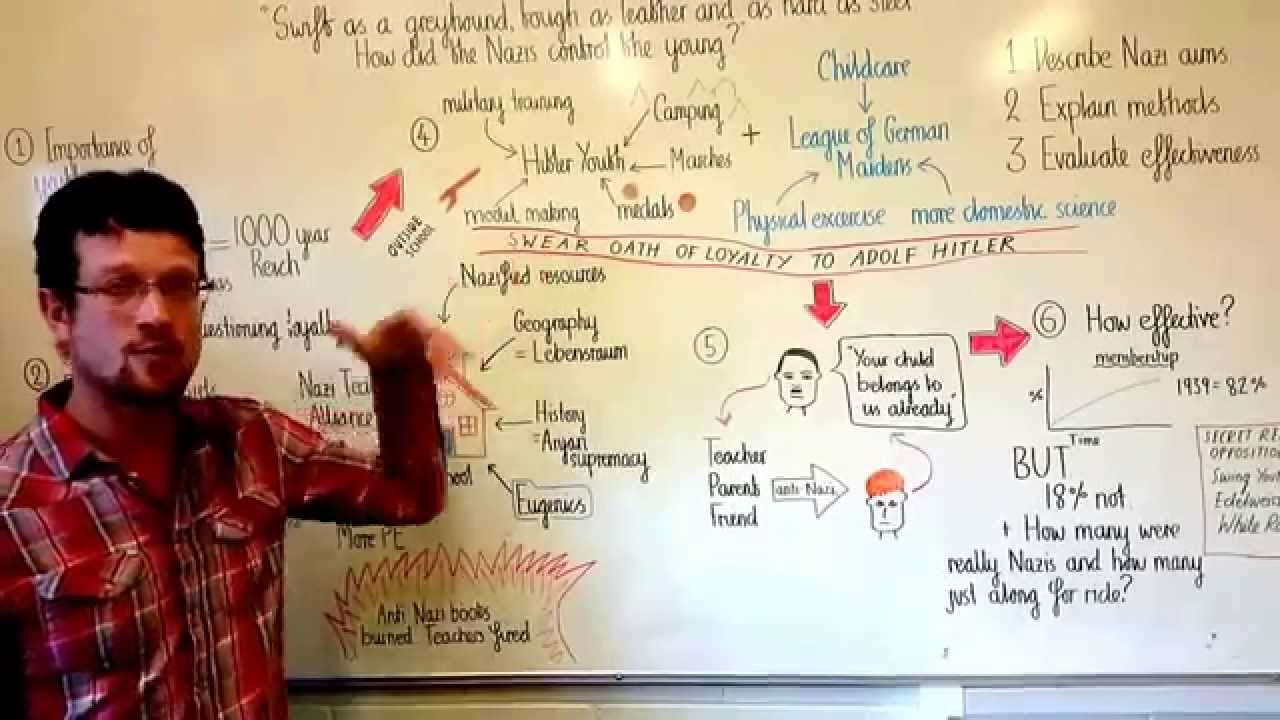 "Swift as a greyhound, tough as leather and as hard as steel"
How did the Nazis control the young?
1 Describe Nazi aims
2 Explain methods
3 Evaluate effectiveness
① Importance of
= 1000 year
Reich
② 
Nazi
Alliance
More PE
Anti Nazi books
burned Teachers fired
OUTSIDE
SCHOOL
④
military training
Camping
Hitler Youth
Marches
model making
medals
+
Childcare
League of German
Maidens
Physical excercise
more domestic science
SWEAR OATH OF LOYALTY TO ADOLF HITLER
Nazified resources
Geography
= Lebensraum
History
= Aryan
supremacy
Eugenics
⑤
"Your child
belongs to
us already"
Teacher
Parent
Friend
anti Nazi
⑥ How effective?
membership
%
Time
1939 = 82%
BUT
18% not
+ How many were
really Nazis and how many
just along for ride?
SECRET
OPPOSITION
Swing